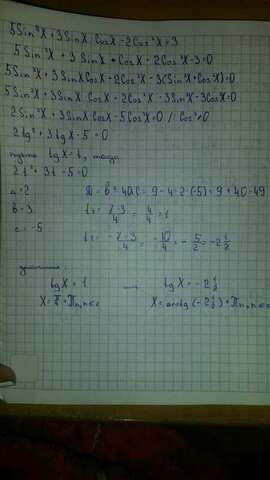 5Sin²X+3SinX·CosX-2Cos²X=3
5Sin²X+3SinX·CosX-2Cos²X-3=0
5Sin²X+3SinX CosX-2Cos²X-3(Sin²X+Cos²X)=0
5Sin²X+3SinX CosX-2Cos²X-3Sin²X-3CosX=0
2Sin²X+3SinX CosX-5CosX=0 /: Cos²≠0
2tg²+3tgX-5=0
пусть tgX=t, тогда
2t²+3t-5=0
a=2 D=b²-4ac=9-4·2·(-5)=9+40=49
b=3 t₁=7-3/4=4/4=1
c=-5 t₂=-7-3/4=-10/4=-5/2=-2 1/2
tgX=1 tgX=-2 1/2
X=π/4+πn, n∈z X=arctg(-2 1/2)+πn, n∈z